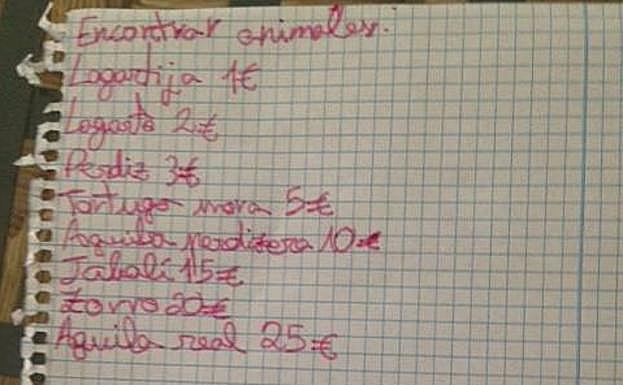 Encontrar animales:
Lagartija 1€
Lagarto 2€
Perdiz 3€
Tortuga mora 5€
Aguila perdizera 10€
Jabalí 15€
Zorro 20€
Aguila real 25€